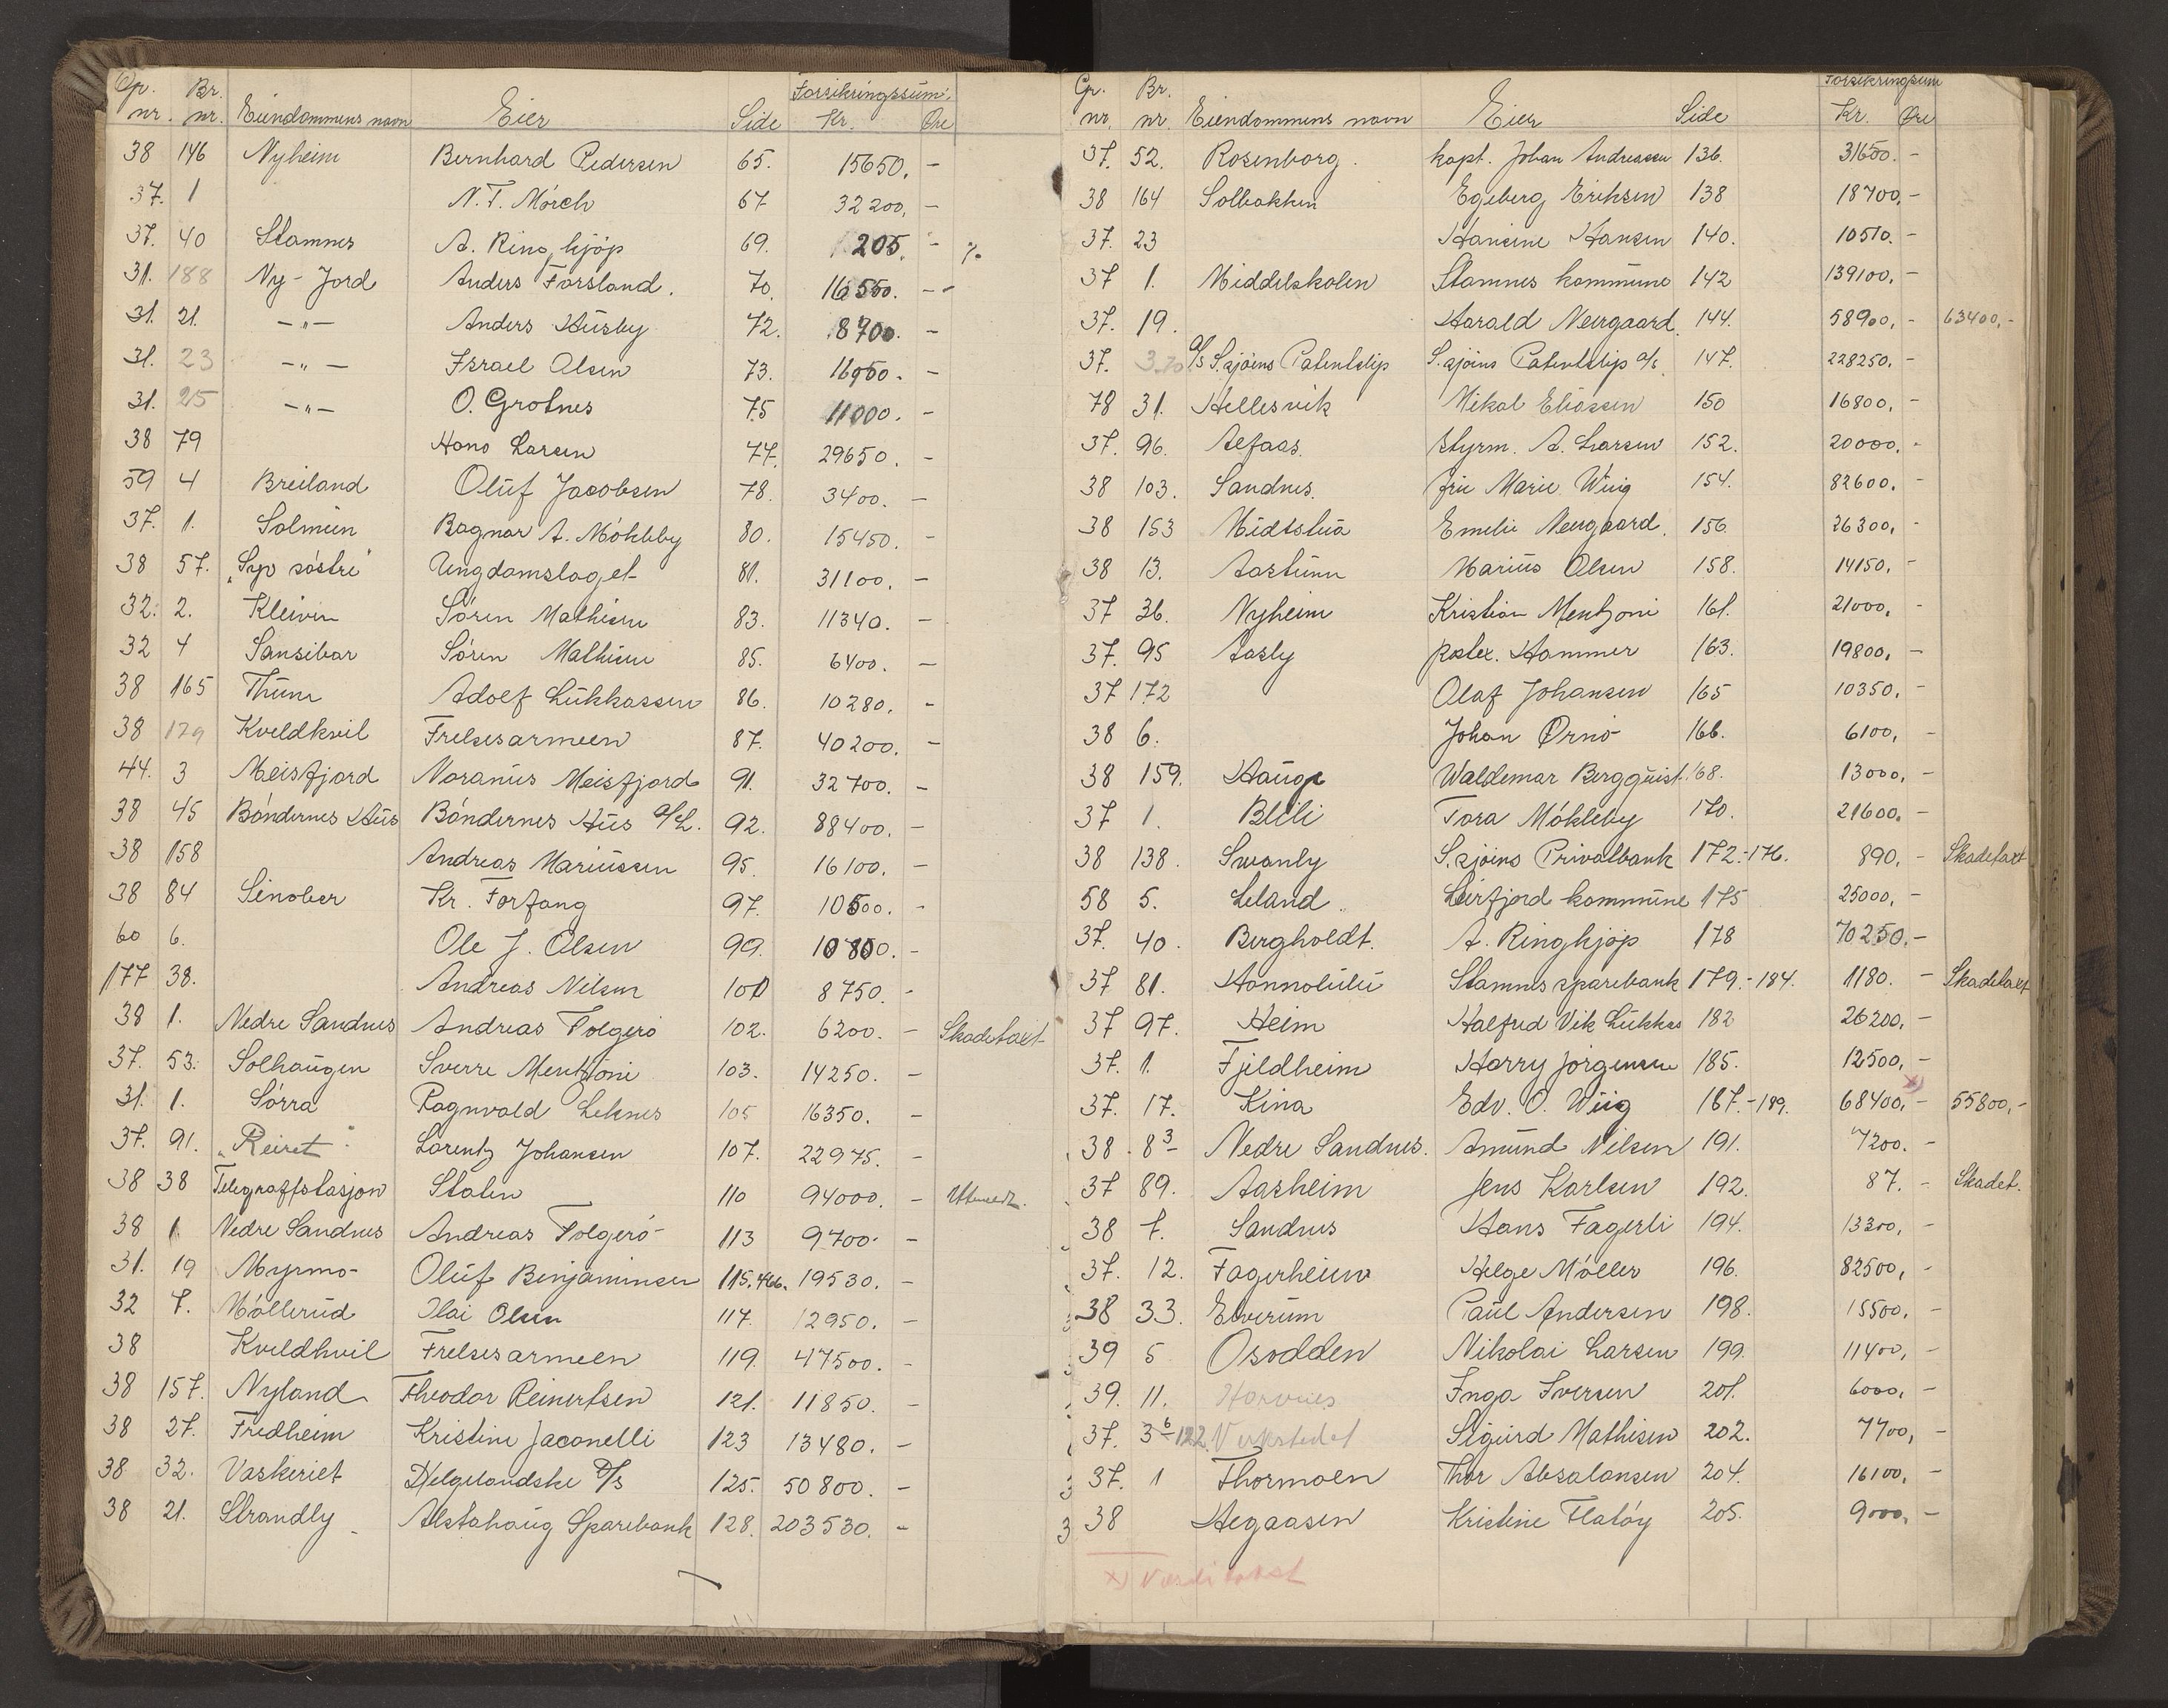 Gr. nr. Br. nr. Eiendommens navn Eier Side Forsikringssum. Kr. Øre
38 146 Nyheim Bernhard Pedersen 65. 15650. -
37. 1 N. T. Mörch 67 32200. -
37. 40 Stamnes A. Ringkjöp 69. 205. - %
31. 188 Ny-Jord Anders Forsland. 70. 16550. -
31. 21. -"- Anders Husby 72. 8700. -
31. 23 -"- Israel Olsen 73. -
31. 25 -"- O. Grotnes 75 11000. -
38 79 Hans Larsen 77. 29650. -
59 4 Breiland Oluf Jacobsen 78. 3400. -
37. 1. Solmun Ragnar A. Mökleby 80. 15450. -
38 57. "Syv söstre" Ungdomslaget 81. 31100. -
32. 2. Kleiven Sören Mathisen 83. 11340. -
32 4 Sansibar Sören Mathisen 85. 6400. -
38 165 Thune Adolf Lukkassen 86. 10280. -
38 129 Kveldkvil Frelsesarmeen 87. 40200. -
44. 3 Meisfjord Noranus Meisfjord 91. 32700. -
38 45 Böndernes Hus Böndernes Hus a/L. 92. 88400. -
38 158 Andreas Mariussen 95. 16100. -
38 84 Sinober Kr. Forfang 97. 10500. -
60 6. Ole J. Olsen 99. 10800. -
177 38. Andreas Nilsen 101 8750. -
38 1. Nedre Sandnes Andreas Folgerö 102. 6200. - Skadetaxt
37. 53. Solhaugen Sverre Mentzoni 103. 14250. -
31. 1. Sörra Ragnvald Leknes 105 16350. -
37. 91. "Reiret" Lorentz Johansen 107. 22975. -
38 38 Telegrafstasjon Staten 110 94000. - Utmeldt.
38 1 Nedre Sandnes Andreas Folgerö 113 9700. -
31. 19 Myrmo Oluf Benjaminsen 115.466. 19530. -
32 7. Möllerud Olai Olsen 117. 12950. -
38 Kveldhvil Frelsesarmeen 119. 47500. -
38 157. Nyland Theodor Reinertsen 121. 11850. -
38 27. Fredheim Kristine Jaconelli 123 13480. -
38 32. Vaskeriet Helgelandske D/s 125. 50800. -
38 21. Strandly Alstahaug Sparebank 128. 203530. -
Gr. nr. Br. nr. Eiendommens navn Eier Side Forsikringssum Kr. Øre
37. 52. Rosenborg. kapt. Johan Andreassen 136. 31600. -
38 164 Solbakken Egeberg Eriksen 138 18700. -
37. 23 Hansine Hansen 140. 10510. -
37 1. Middelskolen Stamnes kommune 142 139100. -
37. 19. Harald Neergaard. 144. 58900. - 63400. -
37. a/s S.sjöens Patentslip S.sjöens Patentslip a/s. 147. 228250. -
78 31. Hellesvik Mikal Eliassen 150 16800. -
37. 96. Alfaas. styrm. A. Larsen 152. 20000. -
38 103. Sandnes. fru Marie Wiig 154. 82600. -
38 153 Midtstua Emelie Neergaard. 156. 26300. -
38 13. Aastunn Marius Olsen 158. 14150. -
37 36. Nyheim Kristian Mentzoni 161. 21000. -
37. 95 Aasly postex. Hammer 163. 19800. -
37 172 Olaf Johansen 165 10350. -
38 6. Johan Ørnö 166. 6100. -
38 159. Hauge Waldemar Bergquist. 168. 13000. -
37 1. Blili Tora Mökleby 170. 21600. -
38 138. Swanly S.sjöens Privatbank 172.-176. 890. - Skadetaxt
58 5. Leland. Leirfjord kommune 175 25000. -
37. 40. Bergholdt. A. Ringkjöp 178 70250. -
37 81. Honnolulu Stamnes sparebank 179.-184. 1180. - Skadetaxt
37 97. Heim Halfred Vik Lukkas 182 26200. -
37. 1. Fjeldheim Harry Jörgensen 185. 12500. -
37. 17. Kina Edv. O. Wiig 187.-189. 68400. - x) 55800. -
38. 83 Nedre Sandnes. Amund Nilsen 191. 7200. -
37 89. Aasheim Jens Karlsen 192. 87. - Skadet.
38 7. Sandnes Hans Fagerli 194. 13300. -
37. 12. Fagerheim Helge Möller 196. 82500. -
38 33. Elverum Paul Andersen 198. 15500. -
39 5 Osodden Nikolai Larsen 199. 11400. -
39. 11. Inga Iversen 201. 6000. -
37. 36 122 Verkstedet Sigurd Mathisen 202. 7700. -
37. 1 Thormoen Thor Absalonsen 204. 16100. -
38 Hegaasen Kristine Flatöy 205. 9000. -
x) Verditakst